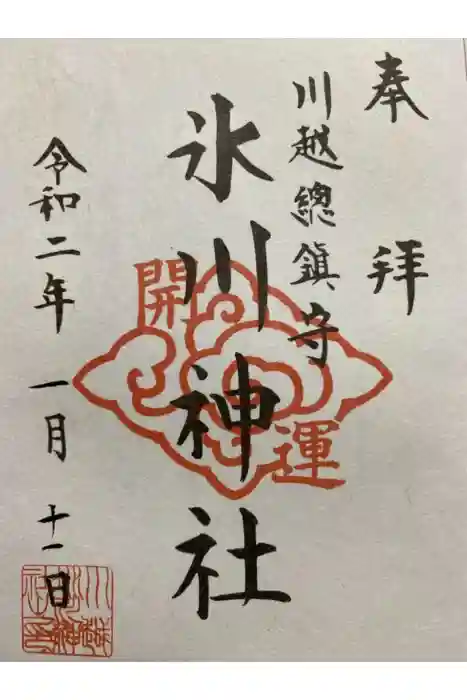 奉拝
川越總鎮守
氷川神社
開運
令和二年一月十一日